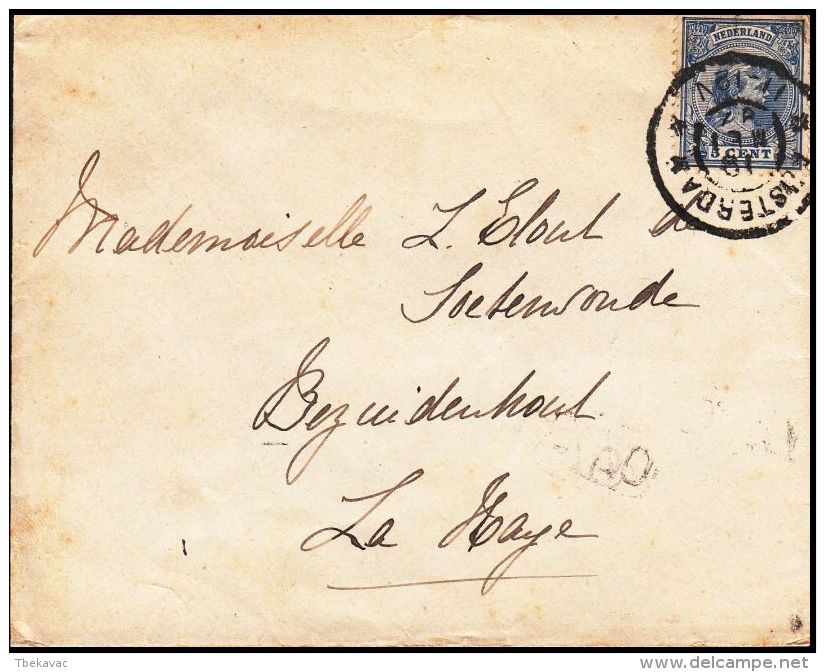 NEDERLAND
5 CENT
AMSTERDAM
11-12V
Mademoiselle L. Elout de
Soeterwoude
Bezuidenhout
La Haye
Tbekavac
delcampe.net